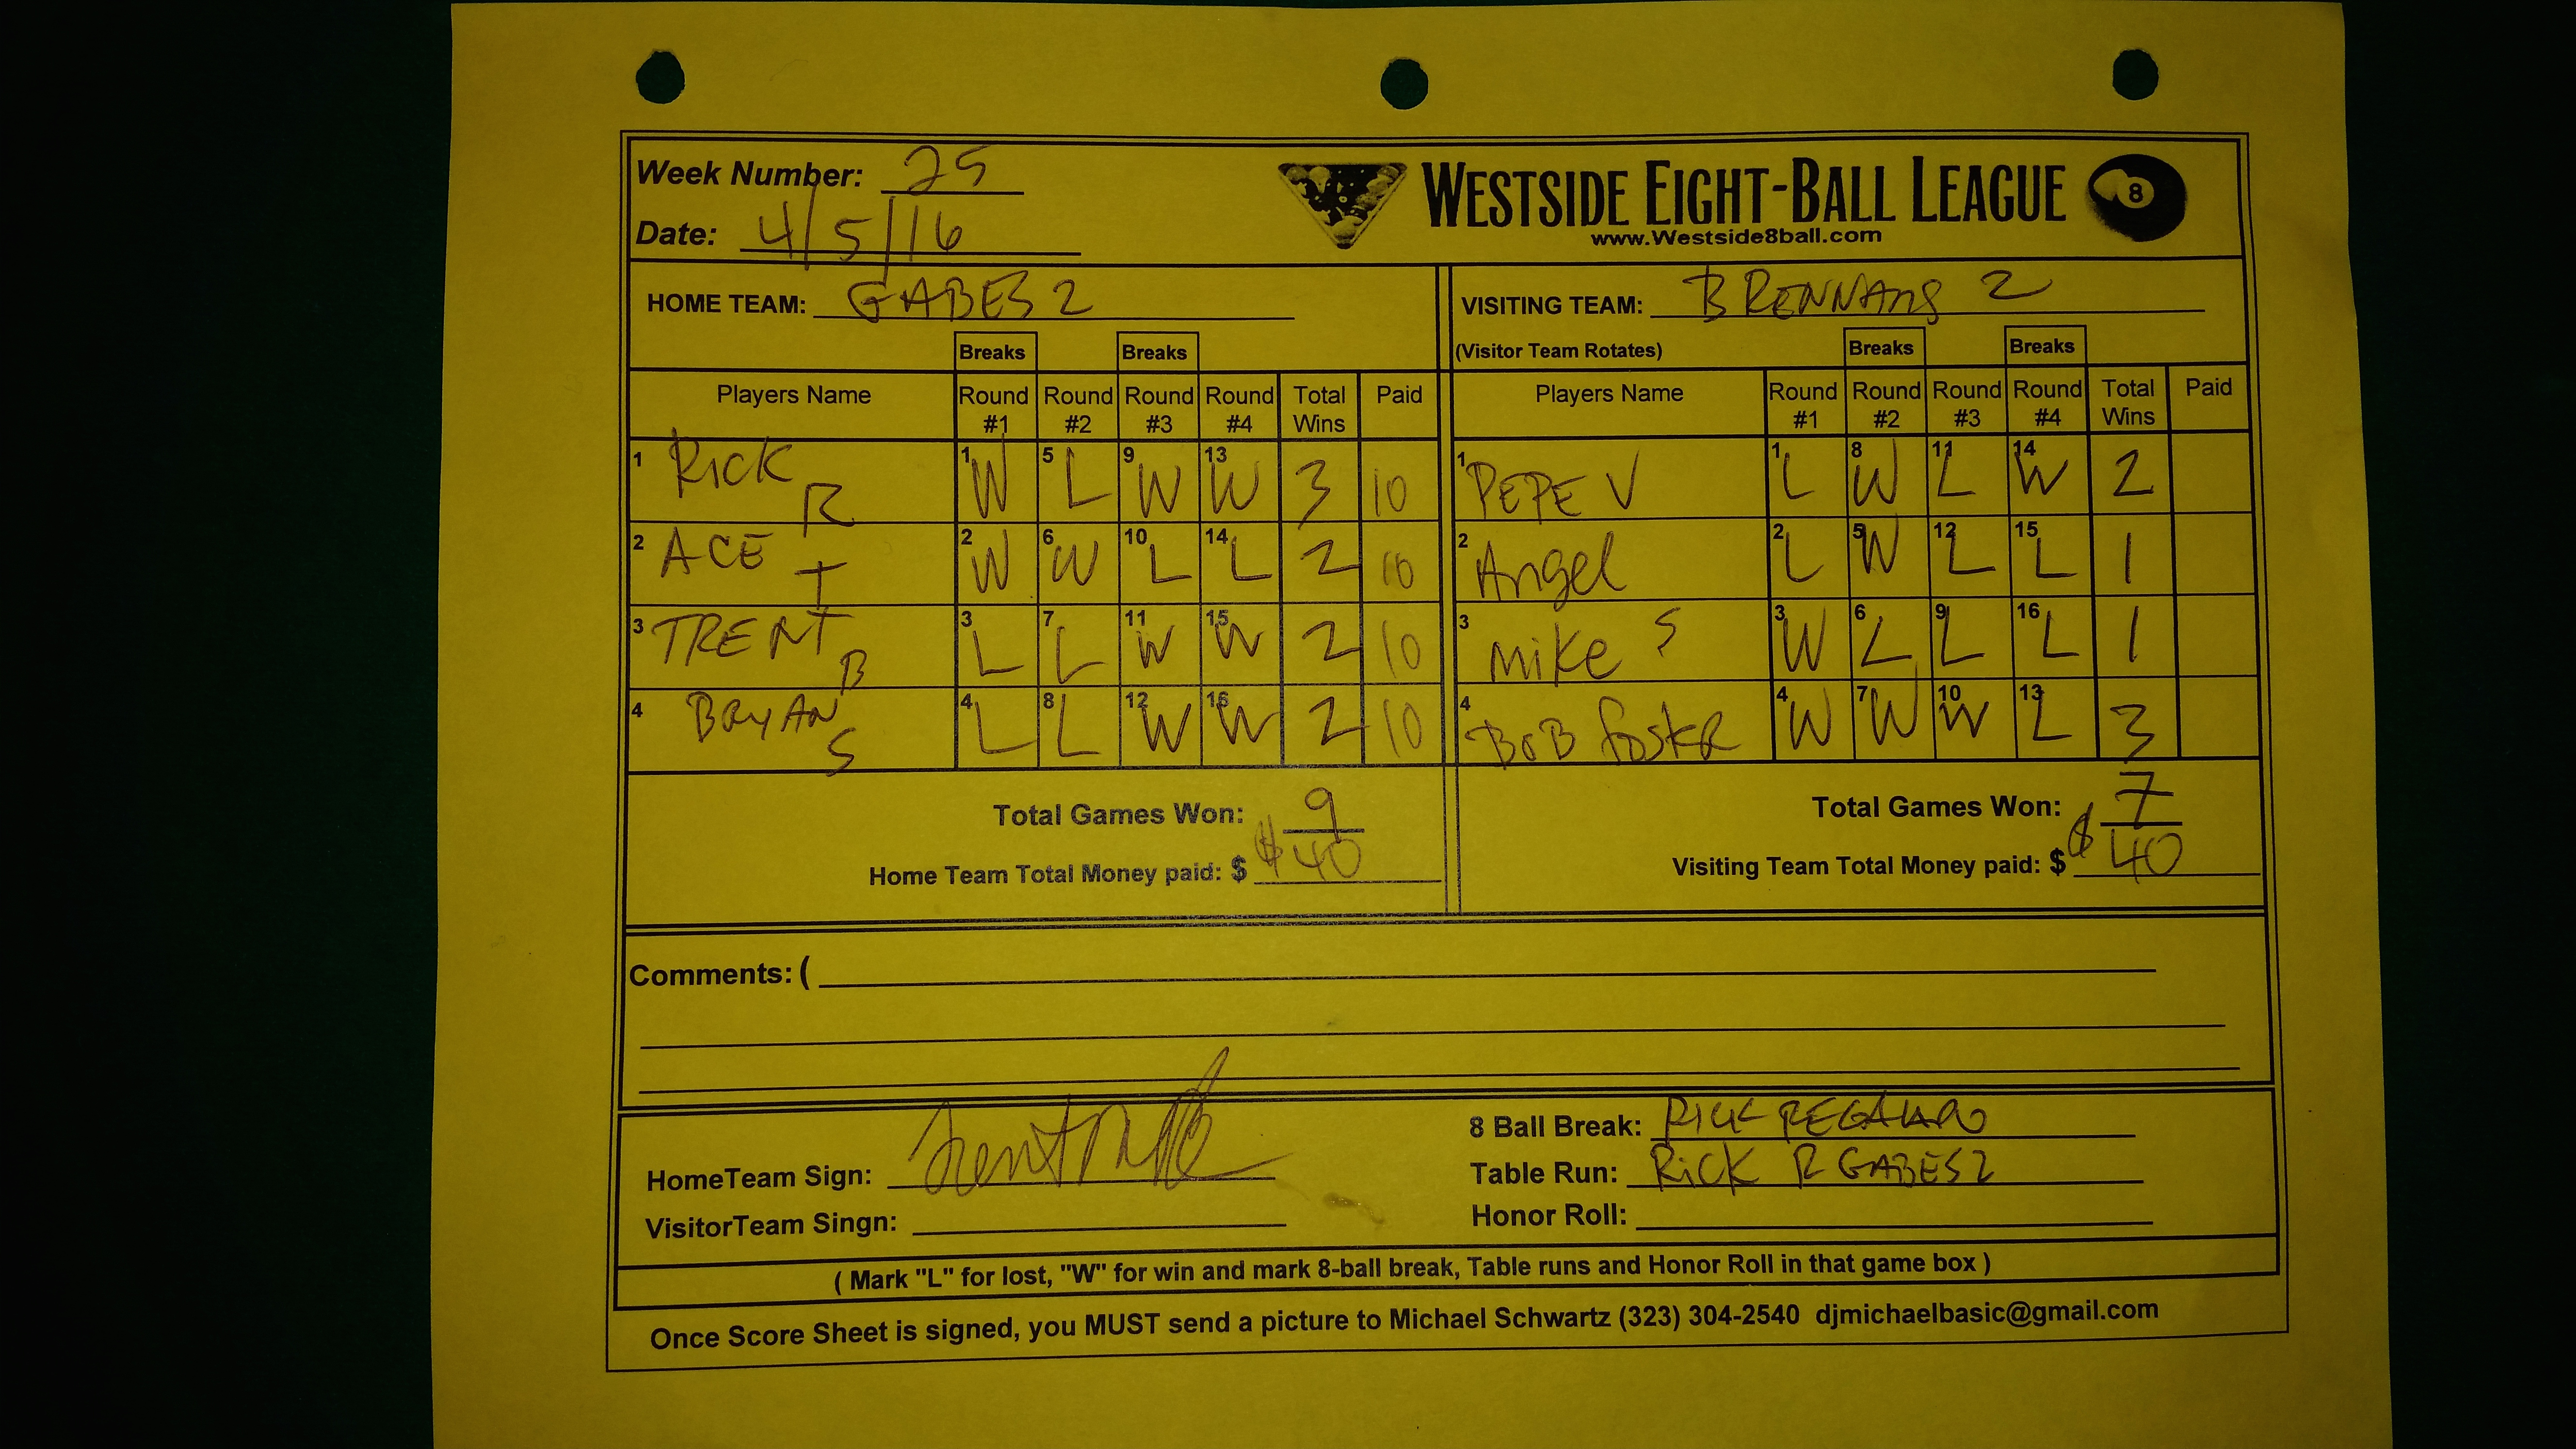 Week Number: 25
Date: 4/5/16
WESTSIDE EIGHT-BALL LEAGUE 8
www.Westside8ball.com
HOME TEAM: GABES 2
VISITING TEAM: BRENNANS 2
Breaks Breaks
(Visitor Team Rotates) Breaks Breaks
Players Name Round #1 Round #2 Round #3 Round #4 Total Wins Paid
Players Name Round #1 Round #2 Round #3 Round #4 Total Wins Paid
1 RICK R 1 W 5 L 9 W 13 W 3 10
1 PEPE V 1 L 8 W 11 L 14 W 2
2 ACE T 2 W 6 W 10 L 14 L 2 10
2 Angel 2 L 5 W 12 L 15 L 1
3 TRENT B 3 L 7 L 11 W 15 W 2 10
3 Mike S 3 W 6 L 9 L 16 L 1
4 BRYAN S 4 L 8 L 12 W 16 W 2 10
4 BOB Foster 4 W 7 W 10 W 13 L 3
Total Games Won: 9
Total Games Won: 7
Home Team Total Money paid: $ $40
Visiting Team Total Money paid: $ $40
Comments: (
8 Ball Break: RICK
HomeTeam Sign:
Table Run: RICK R GABES 2
VisitorTeam Singn:
Honor Roll:
( Mark "L" for lost, "W" for win and mark 8-ball break, Table runs and Honor Roll in that game box )
Once Score Sheet is signed, you MUST send a picture to Michael Schwartz (323) 304-2540 djmichaelbasic@gmail.com